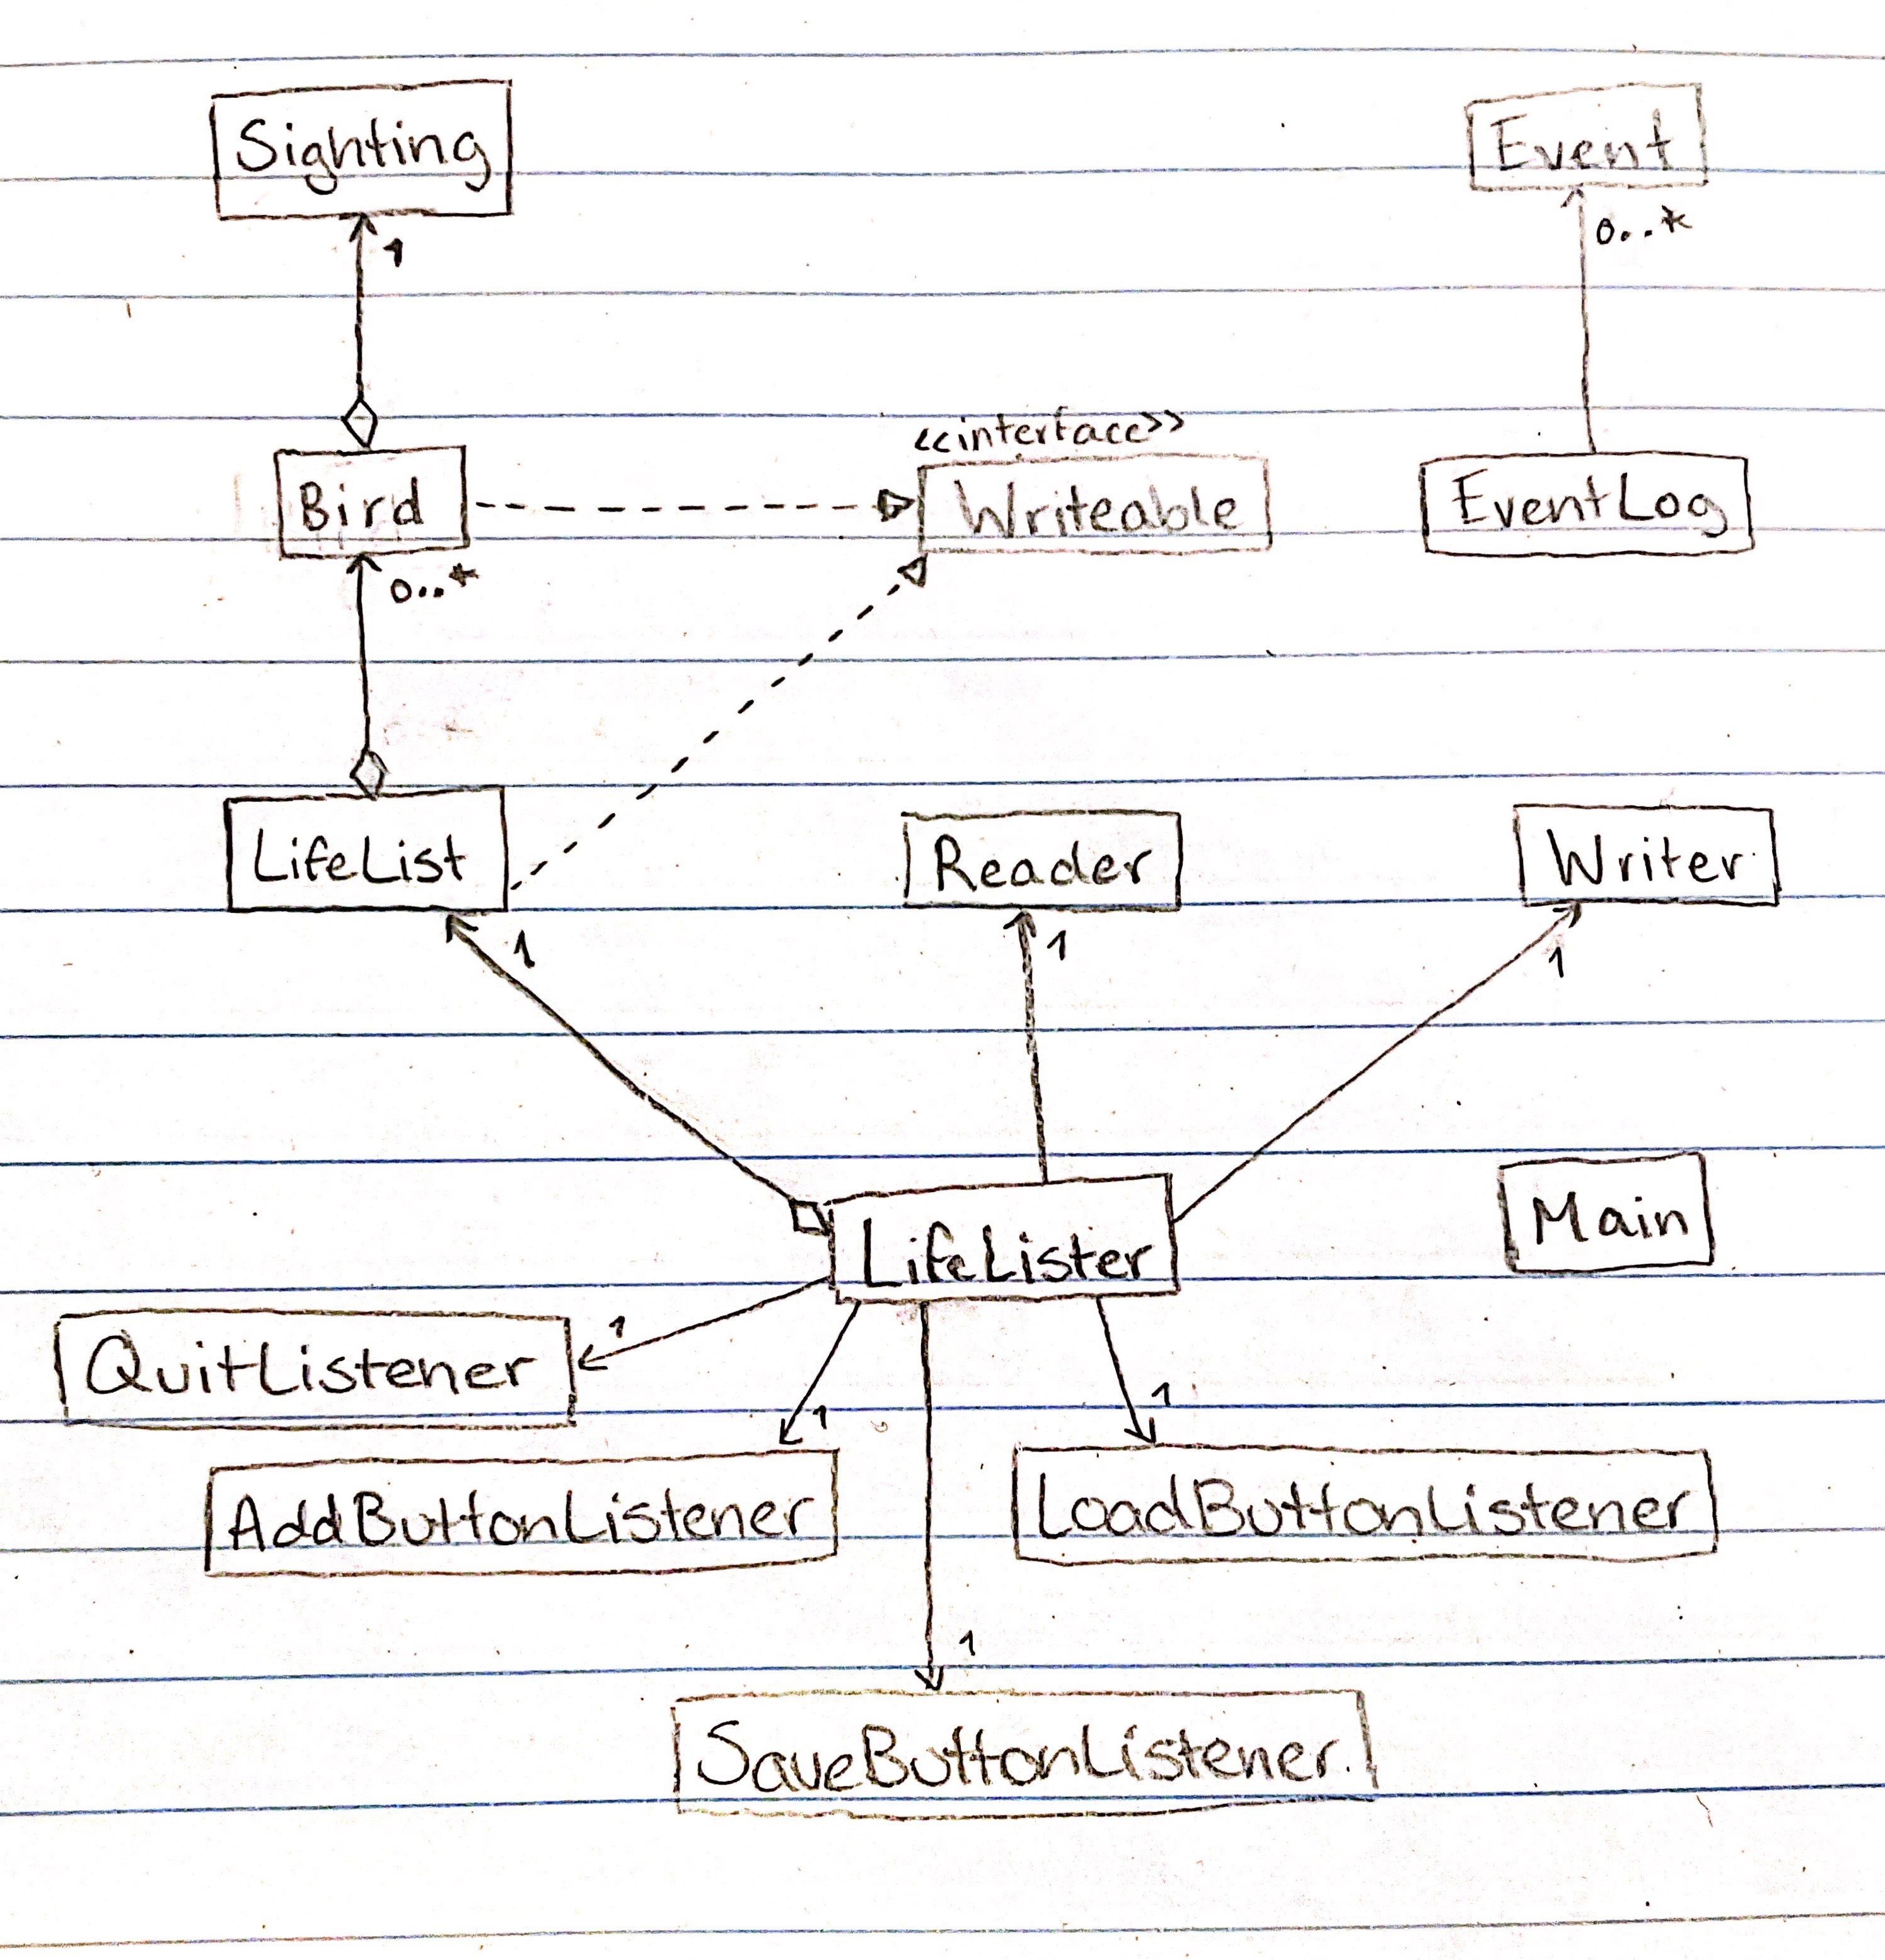 Sighting
Event
1
0..*
<<interface>>
Bird
Writeable
EventLog
0..*
LifeList
Reader
Writer
1
1
1
Main
LifeLister
1
QuitListener
1
1
AddButtonListener
LoadButtonListener
1
SaveButtonListener